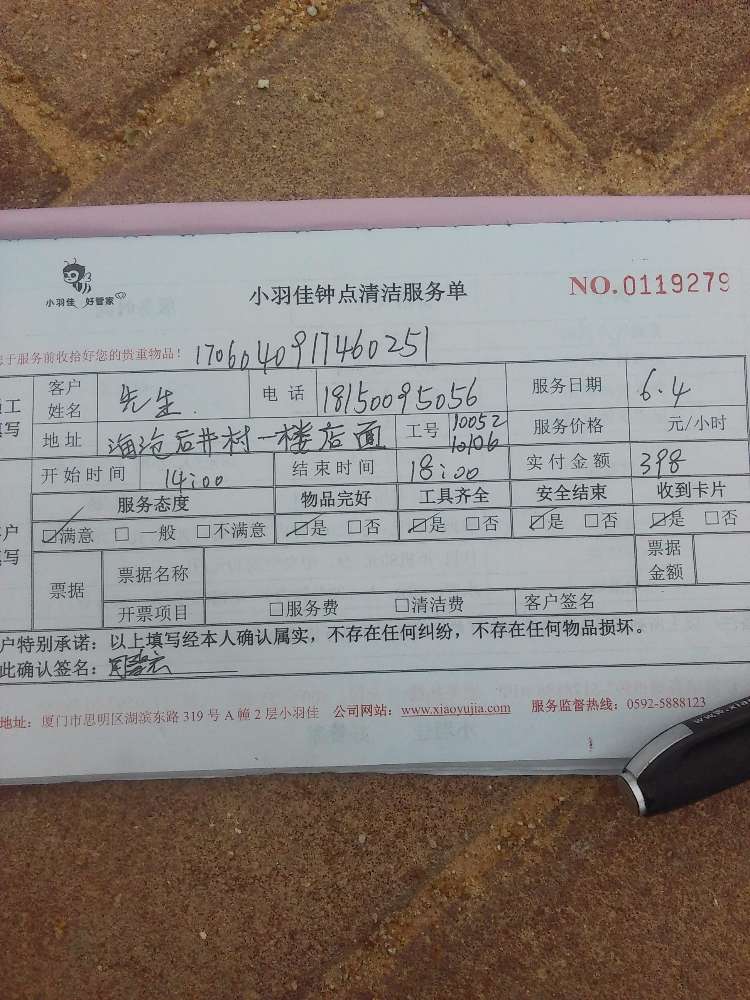 小羽佳 好管家
小羽佳钟点清洁服务单
NO.0119279
于服务前收拾好您的贵重物品! 1706040917460251
工 客户姓名 先生 电 话 18150095056 服务日期 6.4
写 地 址 海沧后井村一楼店面 工号 10052 10106 服务价格 元/小时
开始时间 14:00 结束时间 18:00 实付金额 398
服务态度 物品完好 工具齐全 安全结束 收到卡片
户 ☑满意 □ 一般 □不满意 ☑是 □否 ☑是 □否 ☑是 □否 ☑是 □否
写 票据 票据名称 票据金额
开票项目 □服务费 □清洁费 客户签名
户特别承诺:以上填写经本人确认属实,不存在任何纠纷,不存在任何物品损坏。
此确认签名:
地址:厦门市思明区湖滨东路 319 号 A 幢 2 层小羽佳 公司网站:www.xiaoyujia.com 服务监督热线:0592-5888123